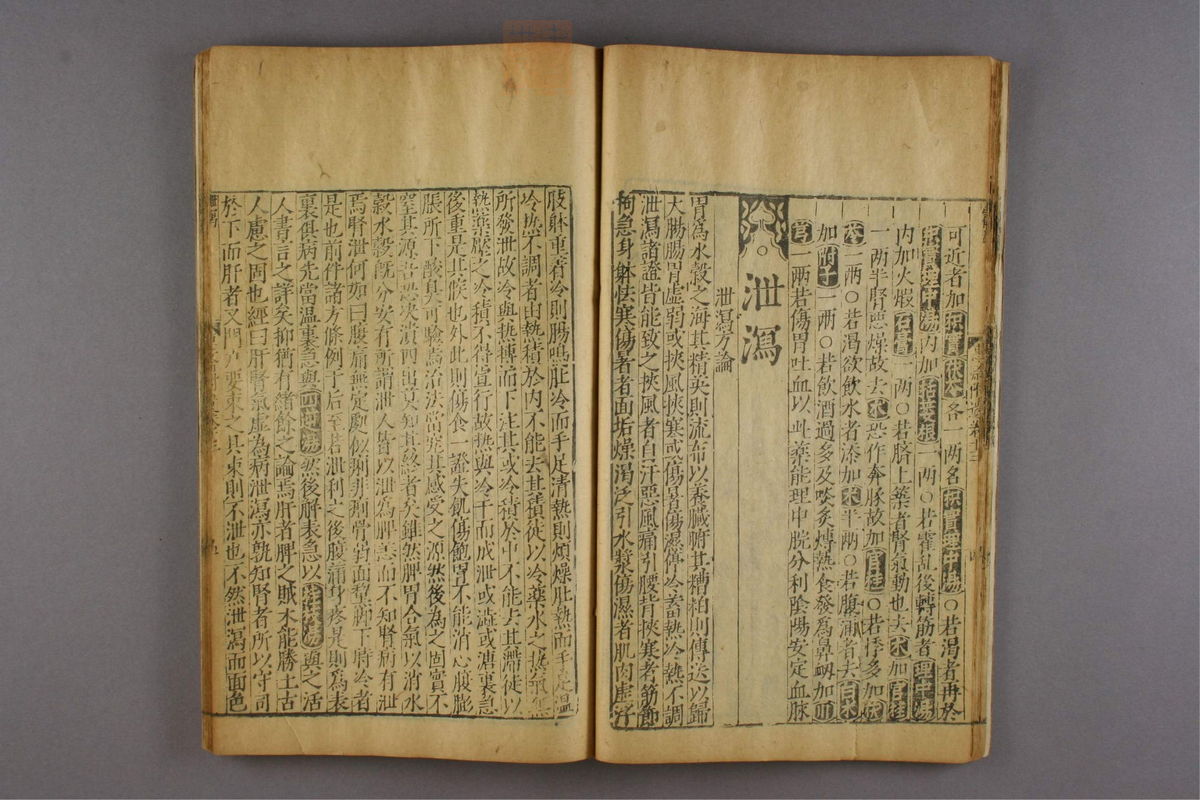 可近者加枳實茯苓各一兩名枳實理中湯○若渴者再於
枳實理中湯內加括蔞根一兩○若霍亂後轉筋者理中湯
內加火煆石膏一兩○若臍上築者腎氣動也去朮加官桂
一兩半腎惡燥故去朮恐作奔豚故加官桂○若悸多加茯
苓一兩○若渴欲飲水者添加朮半兩○若腹滿者去白朮
加附子一兩○若飲酒過多及啖炙煿熱食發為鼻衂加川
芎一兩若傷胃吐血以此藥能理中脘分利陰陽安定血脉
○泄瀉
泄瀉方論
胃為水穀之海其精英則流布以養臟腑其糟粕則傳送以歸
大腸腸胃虛弱或挾風挾寒或傷暑傷濕停冷蓄熱冷熱不調
泄瀉諸證皆能致之挾風者自汗惡風痛引腰背挾寒者筋節
拘急身躰怯寒傷暑者面垢燥渴泛引水漿傷濕者肌肉虛浮
肢躰重著冷則腸鳴肚冷而手足清熱則煩燥肚熱而手足溫
冷熱不調者由熱積於內不能去其積徒以冷藥水之熱氣無
所發泄故冷與熱搏而下注其或冷積於中不能去其滯徒以
熱藥壓之冷積不得宣行故熱與冷干而成泄或澁或溏裏急
後重是其候也外此則傷食一證失飢傷飽胃不能消心腹膨
脹所下酸臭可驗焉治法當究其感受之源然後為之固實不
窒其源害恐次潰四出莫知其終者矣雖然脾胃合氣以消水
穀水穀旣分安有所謂泄人皆以泄為脾恙而不知腎病有泄
焉腎泄何如曰腹痛無定處似痢非痢骨弱面黧脚下時冷者
是也前件諸方條例于后至若泄利之後腹痛身疼是則為表
裏俱病先當溫裏急與四逆湯然後解表急以桂枝湯與之活
人書言之詳矣抑猶有緒餘之論焉肝者脾之賊木能勝土古
人慮之固也經曰肝腎氣虛為病泄瀉亦孰知腎者所以守司
於下而肝者又門戶要束之具束則不泄也不然泄瀉而面色